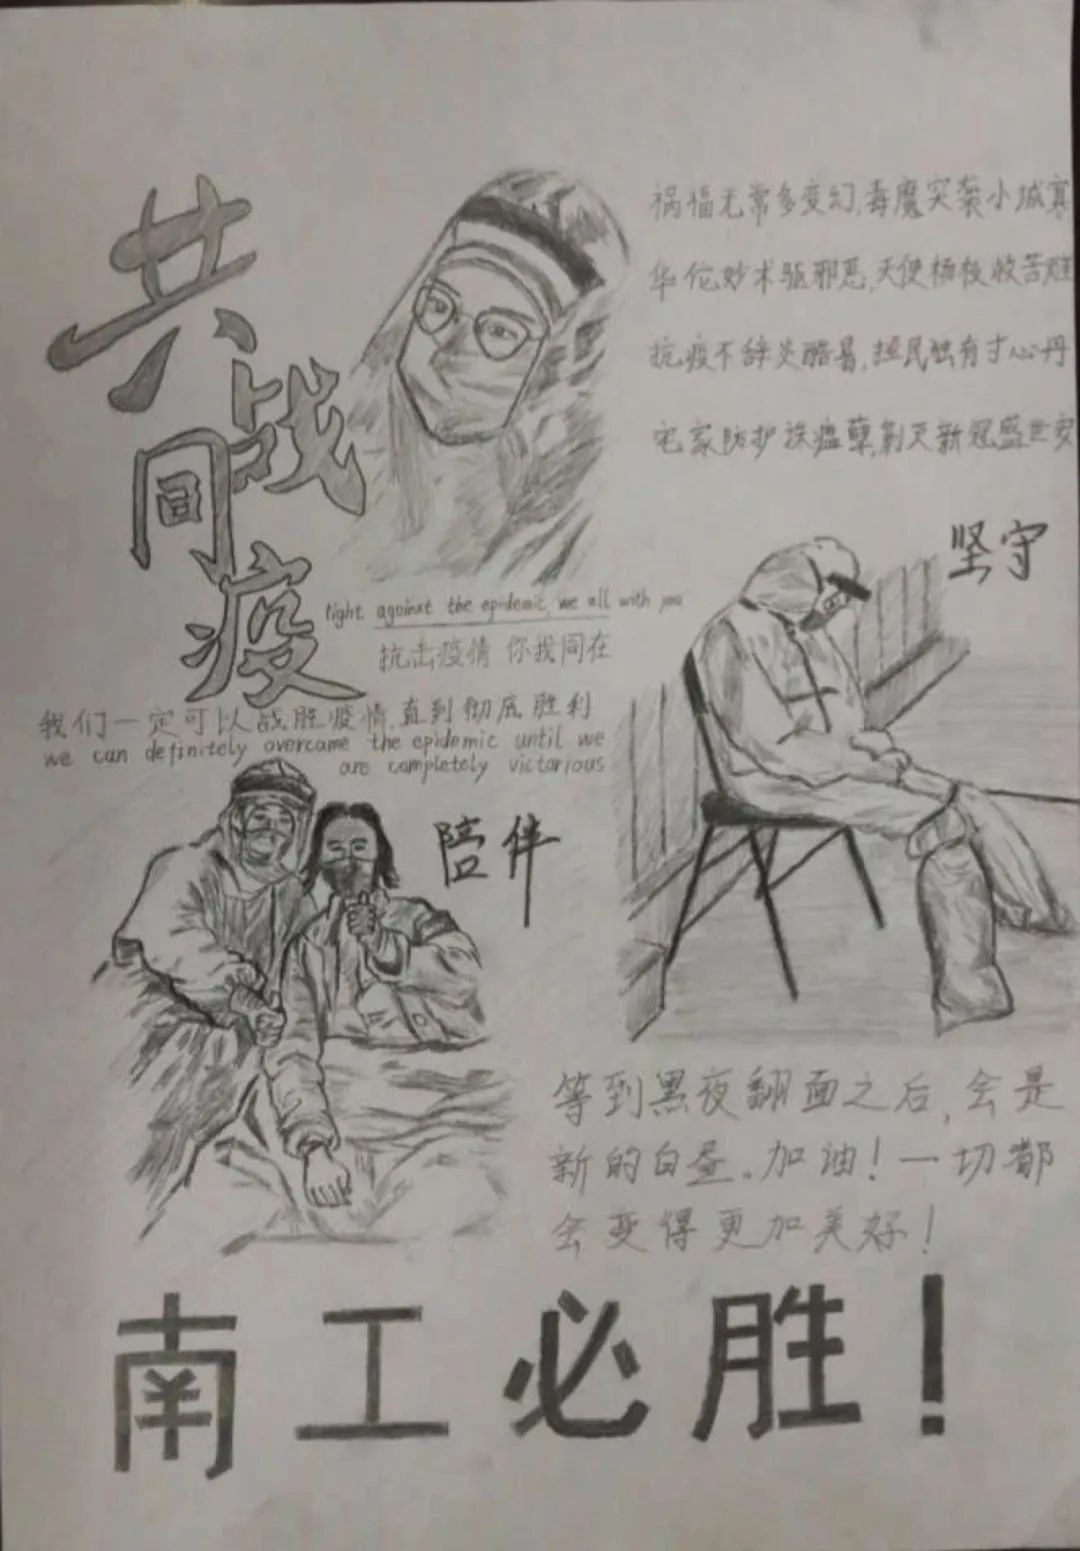 共同战疫
祸福无常多变幻,毒魔突袭小城寒
华佗妙术驱邪恶,天使杨枝救苦难
抗疫不辞炎酷暑,拯民独有寸心丹
宅家防护送瘟孽,剿灭新冠盛世安
坚守
tight against the epidemic, we all with you
抗击疫情 你我同在
我们一定可以战胜疫情,直到彻底胜利
we can definitely overcame the epidemic until we
are completely victorious
陪伴
等到黑夜翻面之后,会是
新的白昼。加油!一切都
会变得更加美好!
南工必胜!